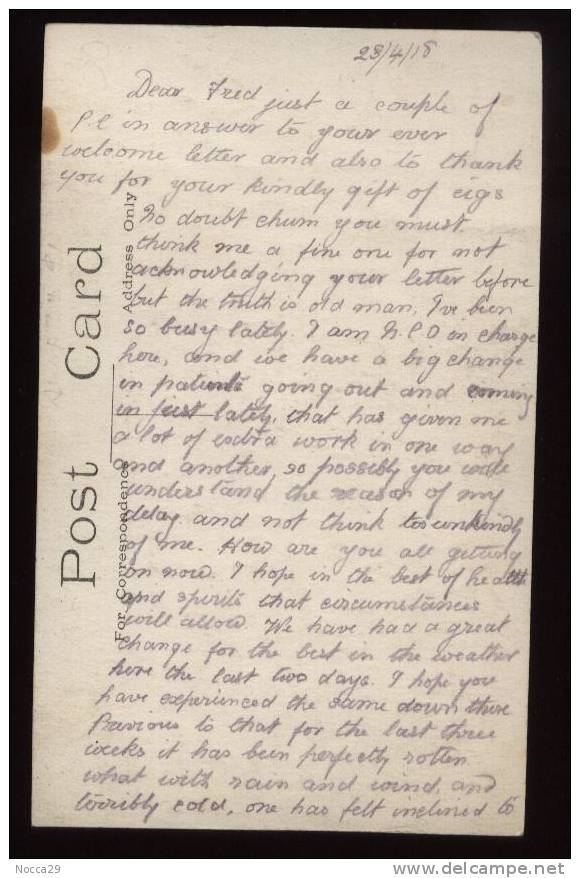 28/4/18
Dear Fred just a couple of
P.C in answer to your ever
welcome letter and also to thank
you for your kindly gift of cigs
No doubt chum you must
think me a fine one for not
acknowledging your letter before
but the truth is old man, I've been
so busy lately. I am N.C.O in charge
here, and we have a big change
in patients going out and coming
in just lately, that has given me
a lot of extra work in one way
and another, so possibly you will
understand the reason of my
delay and not think too unkindly
of me. How are you all getting
on now. I hope in the best of health
and spirits that circumstances
will allow. We have had a great
change for the best in the weather
here the last two days. I hope you
have experienced the same down there
Previous to that for the last three
weeks it has been perfectly rotten
what with rain and wind, and
terribly cold, one has felt inclined to
Post Card
For Correspondence
Address Only
Nocca29
delcampe.net